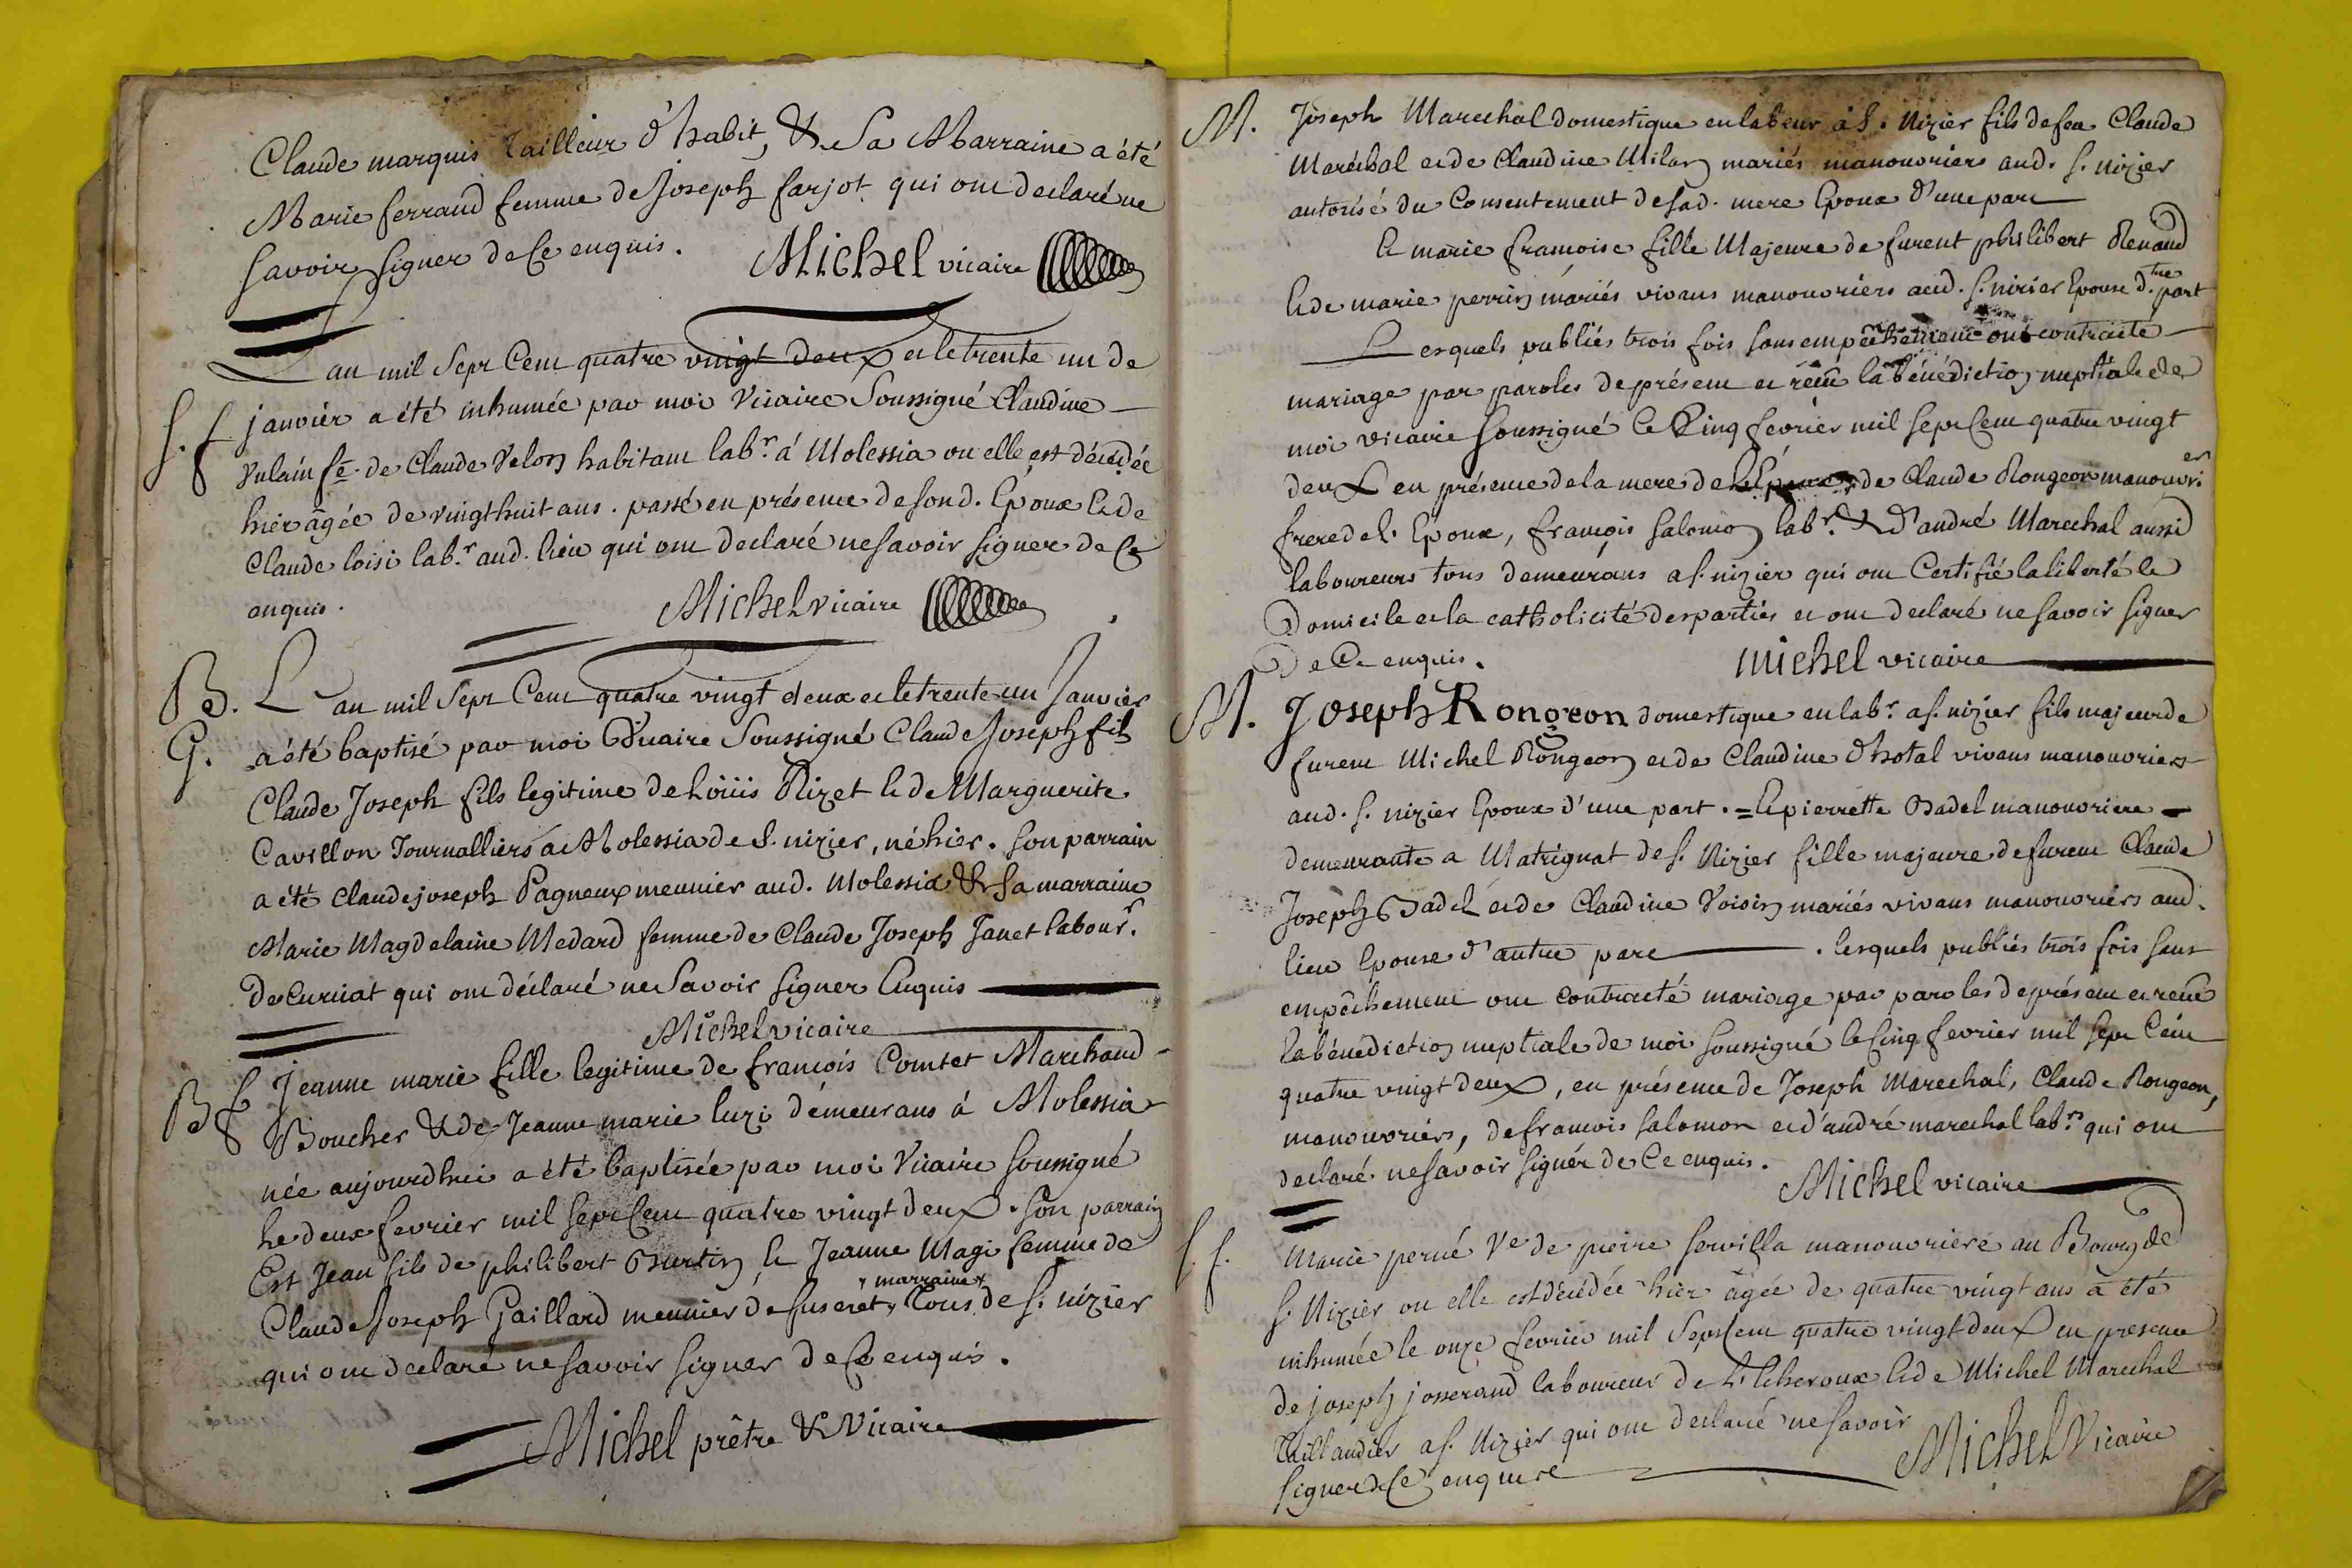 Claude marquis tailleur d'habit, & Sa Marraine a été
Marie ferrand femme de Joseph farjot qui ont declaré ne
savoir signer de ce enquis. Michel vicaire
L'an mil Sept Cent quatre vingt deux et le trente un de
S. f janvier a été inhumée par moi Vicaire Soussigné Claudine
Vulain fe. de Claude Velon habitant labr. á Molessia ou elle est décédée
hier âgée de vingthuit ans. passé en présence de sond. Epoux et de
Claude loisi labr. aud. lieu qui ont declaré ne savoir signer de ce
enquis. Michel vicaire
B. L'an mil Sept Cent quatre vingt deux et le trente un Janvier
G. a été baptisé par moi Vicaire Soussigné Claude Joseph fils
Claude Joseph fils legitime de Loüis Rizet et de Marguerite
Cavillon Journalliers á Molessia de S. nizier, né hier. son parrain
a été Claude joseph Pagneux meunier aud. Molessia & sa marraine
Marie Magdelaine Medard femme de Claude Joseph Janet labour.
de Curciat qui ont déclaré ne Savoir signer Enquis
Michel vicaire
B f Jeanne marie fille legitime de francois Comtet Marchand
Boucher & de Jeanne marie luzi demeurans á Molessia
née aujourdhui a été baptisée par moi Vicaire Soussigné
Le deux fevrier mil sept Cent quatre vingt deux. Son parrain
Est Jean fils de philibert Burtin et Jeanne Magi femme de
marraine
Claude Joseph Gaillard meunier de tous de s. nizier
qui ont declaré ne savoir signer de ce enquis.
Michel prêtre & Vicaire
M. Joseph Marechal domestique en labeur á S. Nizier fils de feu Claude
Maréchal et de Claudine Milan mariés manouvriers aud. s. nizier
autorisé du Consentement de sad. mere Epoux d'une part
Et marie francoise fille Majeure de furent philibert Renaud
Et de marie perrin mariés vivans manouvriers aud. s. nizier Epouse d'.tre part
Lesquels publiés trois fois sans empêchement ont contracté
mariage par paroles de présent et reçu la bénédiction nuptiale de
moi vicaire soussigné le Cinq fevrier mil sept Cent quatre vingt
deux en présence de la mere de de Claude Rongeon manouvrier
frere de l'. Epoux, françois salomon labr. & d'andré Marechal aussi
laboureurs tous demeurans a s. nizier qui ont Certifié la liberté le
Domicile et la catholicité des parties et ont declaré ne savoir signer
De Ce enquis. Michel vicaire
M. Joseph Rongeon domestique en labr. a s. nizier fils majeur de
furent Michel Rongeon et de Claudine Chotal vivans manouvriers
aud. s. nizier Epoux d'une part. = Et pierrette Badel manouvriere
demeurante a Matrignat de s. Nizier fille majeure de furent Claude
Joseph Badel et de Claudine Voisin mariés vivans manouvriers aud.
lieu Epouse d'autre part . lesquels publiés trois fois sans
empêchement ont contracté mariage par paroles de présent et reçu
la bénédiction nuptiale de moi soussigné le Cinq fevrier mil sept Cent
quatre vingt deux, en présence de Joseph Marechal, Claude Rongeon,
manouvriers, de francois salomon et d'andré marechal labrs. qui ont
declaré ne savoir signér de Ce enquis. Michel vicaire
S. f. Marie perné Ve de pierre servilla manouvriere au Bourg de
s. Nizier ou elle est décédée hier âgée de quatre vingt ans a été
inhumée le onze fevrier mil Sept Cent quatre vingt deux en presence
de joseph josserand laboureur de l'Echeroux et de Michel Marechal
taillandier a s. Nizier qui ont declaré ne savoir
signer de Ce enquire Michel Vicaire